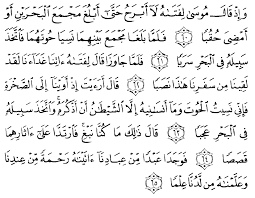 وَإِذْ قَالَ مُوسَىٰ لِفَتَىٰهُ لَآ أَبْرَحُ حَتَّىٰٓ أَبْلُغَ مَجْمَعَ ٱلْبَحْرَيْنِ أَوْ
أَمْضِىَ حُقُبًا ٦٠ فَلَمَّا بَلَغَا مَجْمَعَ بَيْنِهِمَا نَسِيَا حُوتَهُمَا فَٱتَّخَذَ
سَبِيلَهُۥ فِى ٱلْبَحْرِ سَرَبًا ٦١ فَلَمَّا جَاوَزَا قَالَ لِفَتَىٰهُ ءَاتِنَا غَدَآءَنَا لَقَدْ
لَقِينَا مِن سَفَرِنَا هَٰذَا نَصَبًا ٦٢ قَالَ أَرَءَيْتَ إِذْ أَوَيْنَآ إِلَى ٱلصَّخْرَةِ
فَإِنِّى نَسِيتُ ٱلْحُوتَ وَمَآ أَنسَىٰنِيهُ إِلَّا ٱلشَّيْطَٰنُ أَنْ أَذْكُرَهُۥ وَٱتَّخَذَ سَبِيلَهُۥ
فِى ٱلْبَحْرِ عَجَبًا ٦٣ قَالَ ذَٰلِكَ مَا كُنَّا نَبْغِ فَٱرْتَدَّا عَلَىٰٓ ءَاثَارِهِمَا
قَصَصًا ٦٤ فَوَجَدَا عَبْدًا مِّنْ عِبَادِنَآ ءَاتَيْنَٰهُ رَحْمَةً مِّنْ عِندِنَا
وَعَلَّمْنَٰهُ مِن لَّدُنَّا عِلْمًا ٦٥